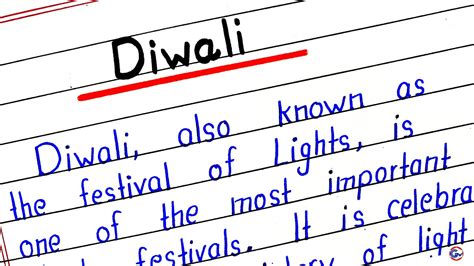 Diwali
Diwali, also known as
the festival of Lights, is
one of the most important
festivals. It is celebra
of light